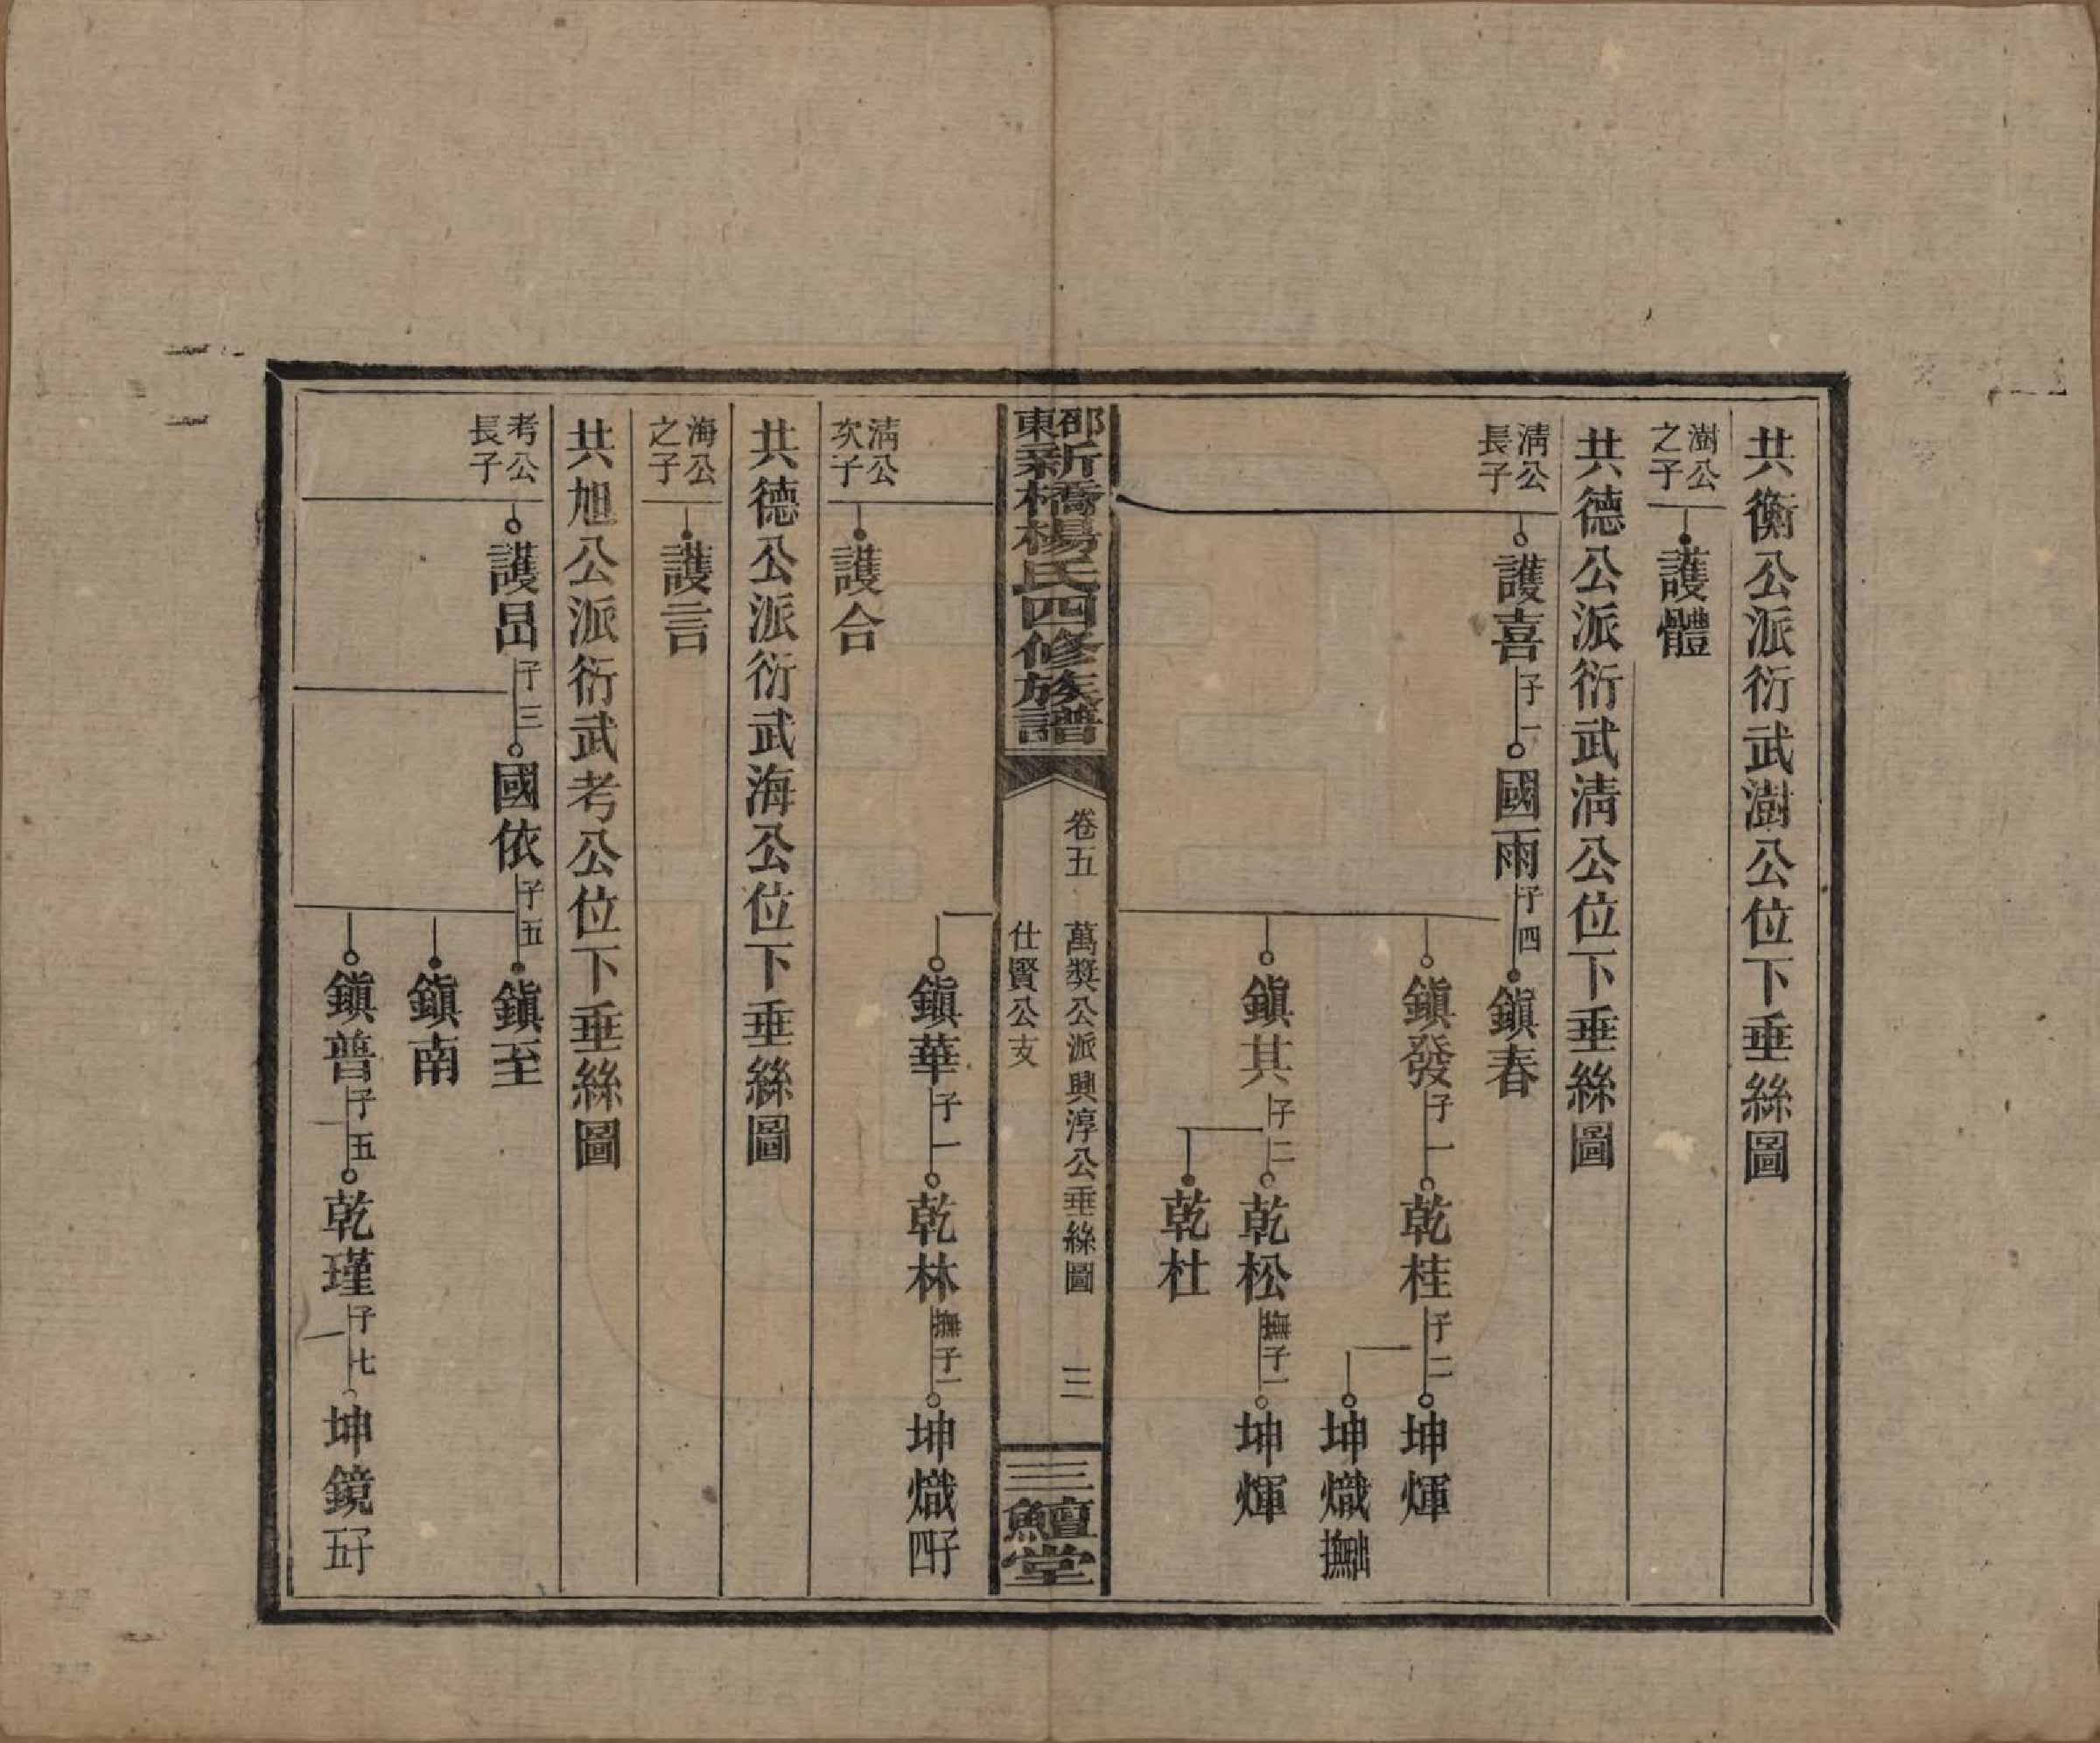 共衡公派衍武澍公位下垂絲圖
澍公之子
護體
共德公派衍武淸公位下垂絲圖
淸公長子
護喜 子一 國雨 子四 鎭春
鎭發 子一 乾桂 子二 坤煇
坤熾
鎭其 子二 乾松 撫子一 坤煇
乾杜
邵東新橋楊氏四修族譜
卷五 萬獎公派興淳公垂絲圖 三
仕賢公支
三鱣堂
鎭華 子一 乾林 撫子一 坤熾 子四
淸公次子
護合
共德公派衍武海公位下垂絲圖
海公之子
護言
共旭公派衍武考公位下垂絲圖
考公長子
護昌 子三 國依 子五 鎭至
鎭南
鎭普 子五 乾瑾 子七 坤鏡 子五